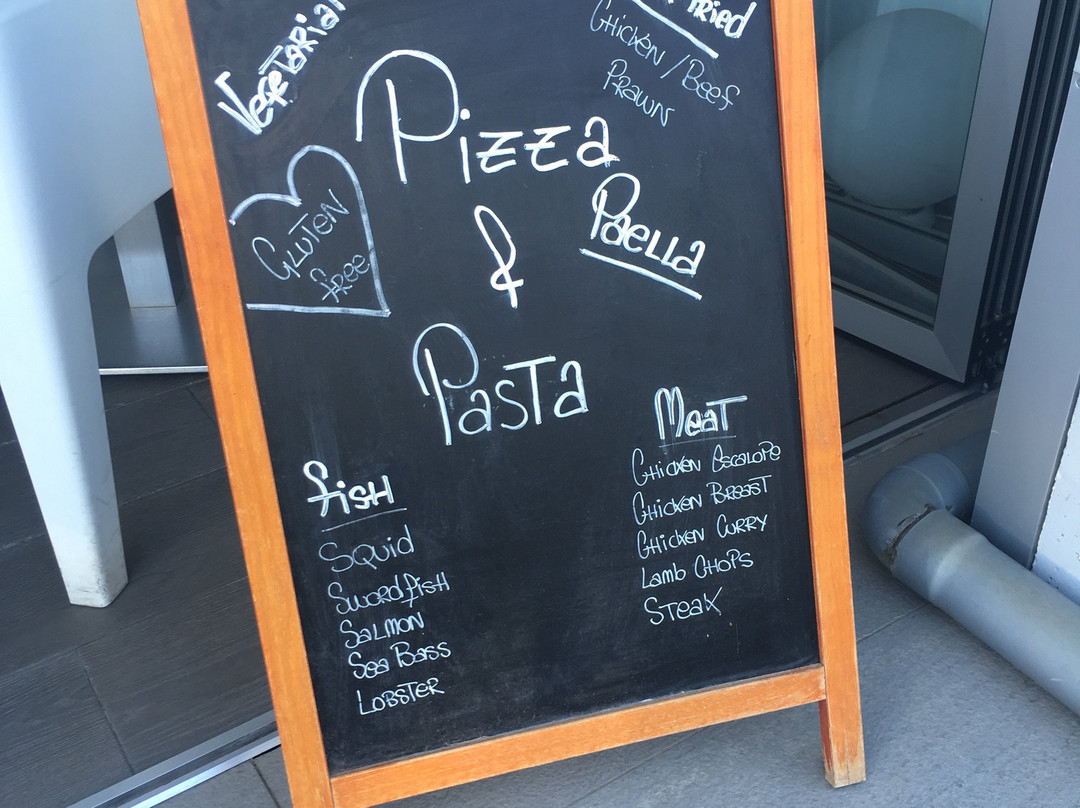 Vegetarian
Fried
Chicken / Beef
Prawn
Pizza
&
Pasta
Gluten
free
Paella
Fish
Squid
Swordfish
Salmon
Sea Bass
Lobster
Meat
Chicken Escalope
Chicken Breast
Chicken Curry
Lamb Chops
Steak